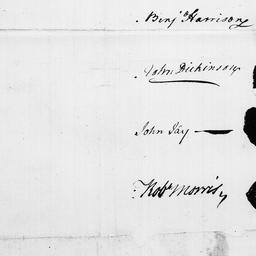 Benj Harrison
John Dickinson
John Jay
Robt Morris